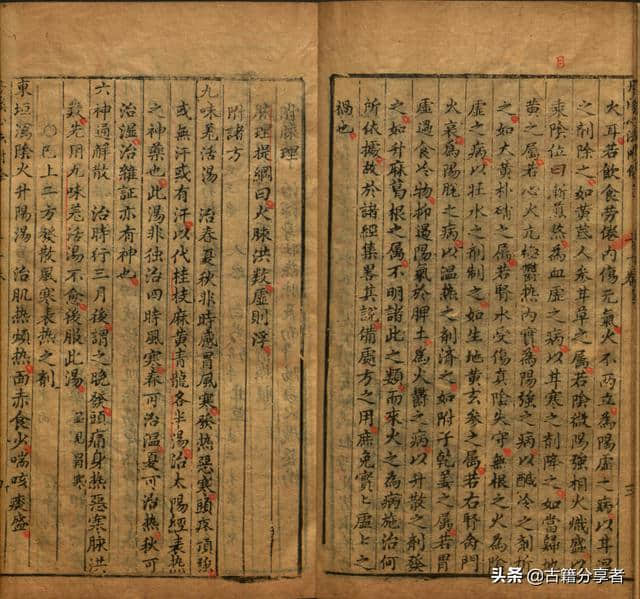 火耳若飲食勞倦內傷元氣火不兩立為陽虛之病以甘温
之劑除之如黃芪人參甘草之屬若陰微陽強相火熾盛以
乘陰位日漸煎熬為血虛之病以甘寒之劑降之如當歸地
黃之屬若心火亢極鬱熱內實為陽強之病以醎冷之劑折
之如大黃朴硝之屬若腎水受傷真陰失守無根之火為陰
虛之病以壯水之劑制之如生地黃玄參之屬若右腎命門
火衰為陽脫之病以温熱之劑濟之如附子乾姜之屬若胃
虛過食冷物抑遏陽氣於脾土為火鬱之病以升散之劑發
之如升麻葛根之屬不明諸此之類而求火之為病施治何
所依據故於諸經集畧其說備處方之用庶免實〻虛〻之
禍也
附脉理
脉理提綱曰火脉洪数虛則浮
附諸方
九味羌活湯 治春夏秋非時感冒風寒發热惡寒頭疼項強
或無汗或有汗以代桂枝麻黃青龍各半湯治太陽經表热
之神藥也此湯非独治四時風寒春可治温夏可治热秋可
治湿治雜証亦有神也
六神通解散 治時行三月後謂之晚發頭痛身热惡寒脉洪
数先用九味羌活湯不愈後服此湯 並見冒寒
○已上二方發散風寒表热之剤
東垣瀉陰火升陽湯 治肌热煩热面赤食少喘咳痰盛
头条 @古籍分享者